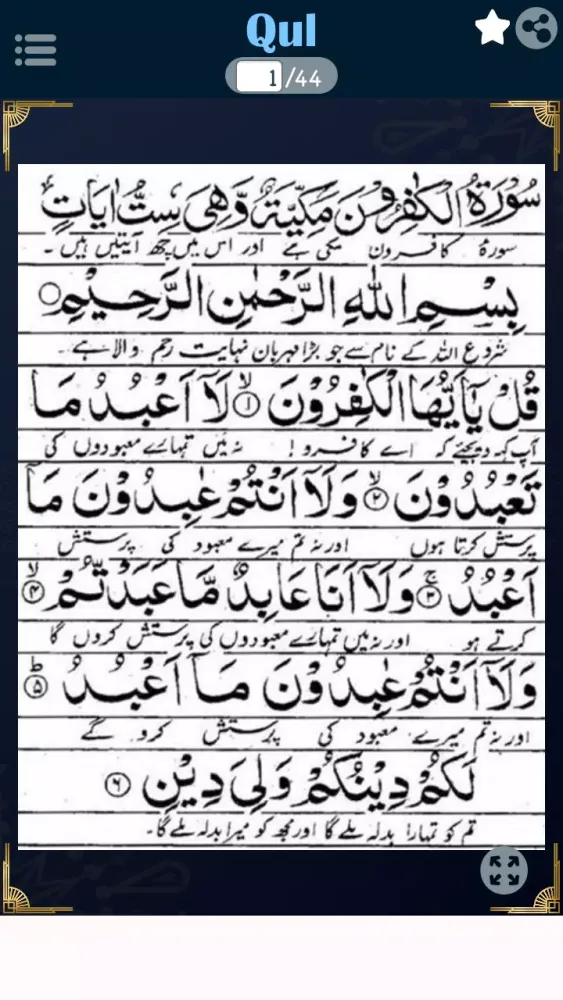 Qul
1/44
سُوْرَةُ الْكٰفِرُوْنَ مَكِّيَّةٌ وَّهِيَ سِتُّ اٰيَاتٍ
سورۂ کافرون مکی ہے اور اس میں چھ آیتیں ہیں۔
بِسْمِ اللّٰهِ الرَّحْمٰنِ الرَّحِيْمِ ○
شروع اللہ کے نام سے جو بڑا مہربان نہایت رحم والا ہے۔
قُلْ يٰۤاَيُّهَا الْكٰفِرُوْنَ ۙ۱ لَاۤ اَعْبُدُ مَا
آپ کہہ دیجئے کہ اے کافرو! نہ میں تمہارے معبودوں کی
تَعْبُدُوْنَ ۙ۲ وَلَاۤ اَنْتُمْ عٰبِدُوْنَ مَاۤ
پرستش کرتا ہوں اور نہ تم میرے معبود کی پرستش
اَعْبُدُ ۚ۳ وَلَاۤ اَنَا عَابِدٌ مَّا عَبَدْتُّمْ ۙ۴
کرتے ہو اور نہ میں تمہارے معبودوں کی پرستش کروں گا
وَلَاۤ اَنْتُمْ عٰبِدُوْنَ مَاۤ اَعْبُدُ ؕ۵
اور نہ تم میرے معبود کی پرستش کرو گے
لَكُمْ دِيْنُكُمْ وَلِيَ دِيْنِ ۶
تم کو تمہارا بدلہ ملے گا اور مجھ کو میرا بدلہ ملے گا۔